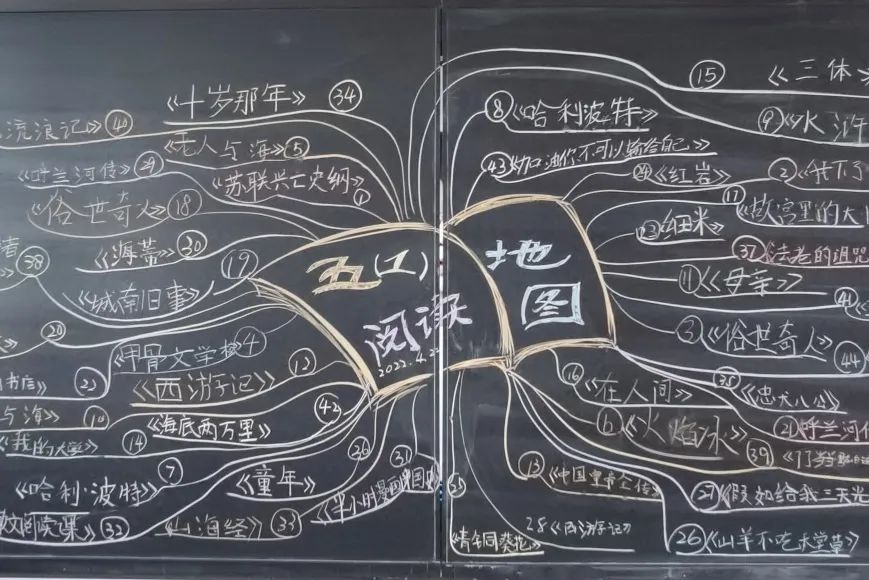 五(1)
阅读
2022.4.22
地
图
《十岁那年》 34
流浪记》 40
老人与海》 5
《呼兰河传》 29
《苏联兴亡史纲》 1
《俗世奇人》 18
《海蒂》 30
者
38
《城南旧事》 19
20
《甲骨文学校 4
书店》 21
《西游记》 12
与海》 10
《海底两万里》 42
《我的大学》 14
《哈利·波特》 7
《童年》 36
阅读课》 32
《山海经》 33
《半小时漫画中国史 31
15 《三体》
8 《哈利波特》
9 《水浒
43 《加油你不可以输给自己》
24 《红岩》
2
17 《故宫里的大
细米
37 《法老的诅咒
11 《母亲》
41
3 《俗世奇人》
44
16 《在人间》
38 《忠犬八公》
6 《火焰冰》
21 《呼兰河传
39
13 《中国皇帝全传》
27 《假如给我三天光
35
《青铜葵花》
28 《西游记》
26 《山羊不吃天堂草》